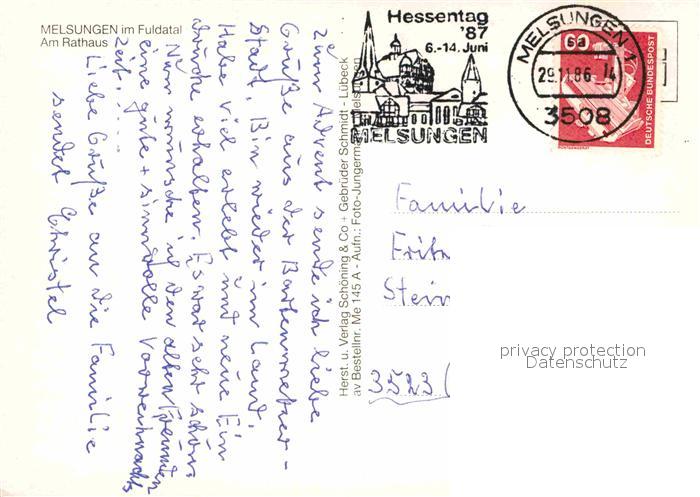 MELSUNGEN im Fuldatal
Am Rathaus
Zum Advent sende ich liebe
Grüße aus der Bartenwetzer-
stadt. Bin wieder im Land.
Habe viel erlebt und neue Ein
drücke erhalten. Es war sehr schön.
Nun wünsche ich den alten Freunden
eine gute + sinnvolle Vorweihnachts
zeit.
Liebe Grüße an die Familie
sendet Christel
Herst. u. Verlag Schöning & Co + Gebrüder Schmidt - Lübeck
av Bestellnr. Me 145 A - Aufn.: Foto-Jungermann, Melsungen
Hessentag
'87
6.-14. Juni
MELSUNGEN
MELSUNGEN 1
sa
29.11.86-14
3508
60
DEUTSCHE BUNDESPOST
Familie
Fritz
Stein
3523
privacy protection
Datenschutz